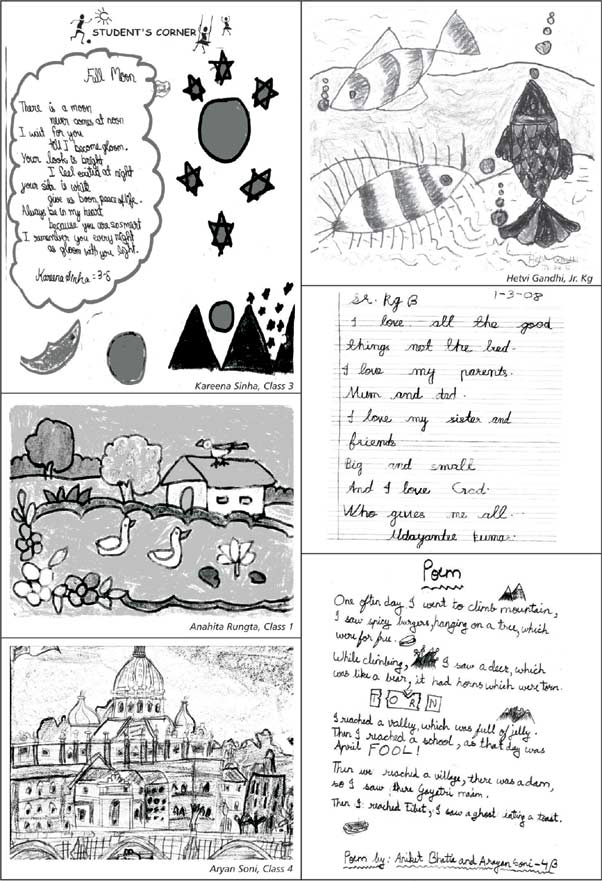 STUDENT'S CORNER
Full Moon
There is a moon
never comes at noon
I wait for you
till I become gloom.
Your look is bright
I feel exited at night
your side is white
give us boon, peace of life.
Always be in my heart
because you are so smart
I remember you every night
as gloom with you light.
Kareena Sinha = 3-S
Kareena Sinha, Class 3
Anahita Rungta, Class 1
Aryan Soni, Class 4
Hetvi Gandhi
Hetvi Gandhi, Jr. Kg
Sr. Kg B 1-3-08
I love all the good
things not the bad.
I love my parents.
Mum and dad.
I love my sister and
friends
Big and small
And I love God.
Who gives me all..
Udayantee Kumar.
Poem
One often day I went to climb mountain,
I saw spicy burgers, hanging on a tree, which
were for free.
While climbing, I saw a deer, which
was like a bear, it had horns which were torn.
TORN
I reached a valley, which was full of jelly.
Then I reached a school, as that day was
April FOOL!
Then we reached a village, there was a dam,
so I saw there Gayatri maam.
Then I reached Tibet, I saw a ghost eating a toast.
Poem by: Aniket Bhatia and Arayan Soni - 4B